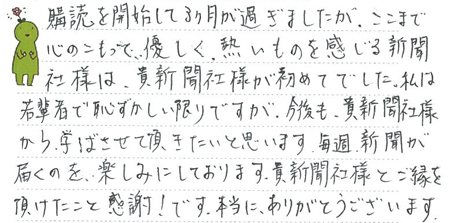 購読を開始して3ヶ月が過ぎましたが、ここまで
心のこもって、優しく、熱いものを感じる新聞
社様は、貴新聞社様が初めてでした。私は
若輩者で恥ずかしい限りですが、今後も、貴新聞社様
から、学ばさせて頂きたいと思います。毎週、新聞が
届くのを、楽しみにしております。貴新聞社様とご縁を
頂けたこと感謝!です。本当に、ありがとうございます。